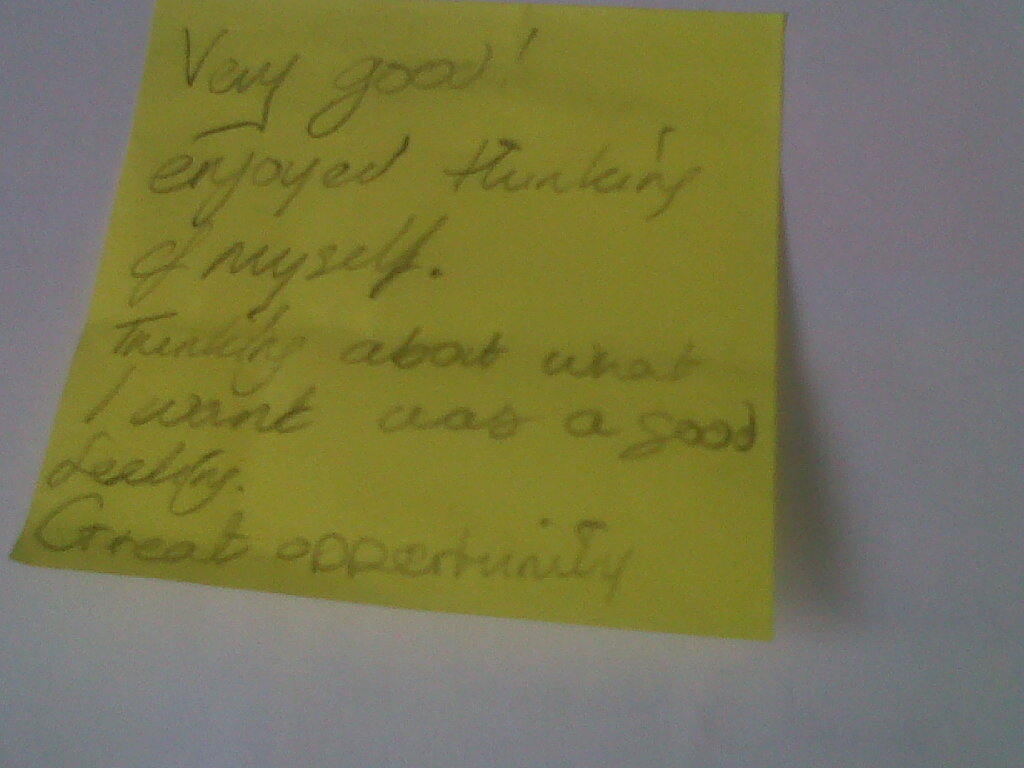 Very good!
enjoyed thinking
of myself.
Thinking about what
I want was a good
feeling.
Great opportunity